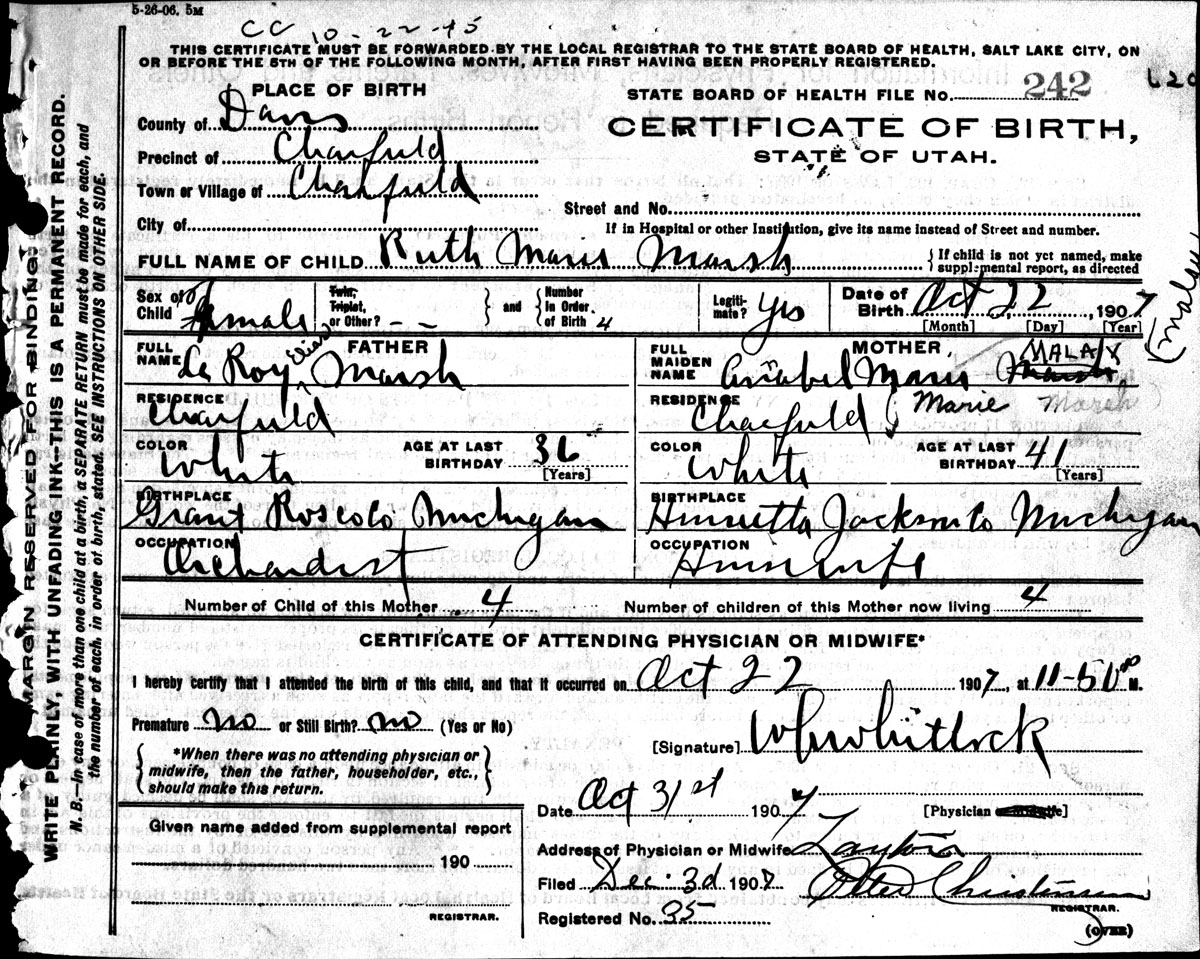 5-26-06. 5M
CC 10-22-45
THIS CERTIFICATE MUST BE FORWARDED BY THE LOCAL REGISTRAR TO THE STATE BOARD OF HEALTH, SALT LAKE CITY, ON
OR BEFORE THE 5TH OF THE FOLLOWING MONTH, AFTER FIRST HAVING BEEN PROPERLY REGISTERED.
PLACE OF BIRTH
STATE BOARD OF HEALTH FILE NO. 242
County of Davis
CERTIFICATE OF BIRTH,
STATE OF UTAH.
Precinct of Clearfield
Town or Village of Clearfield
Street and No.
City of
If in Hospital or other Institution, give its name instead of Street and number.
FULL NAME OF CHILD Ruth Marie Marsh
{ If child is not yet named, make supplemental report, as directed
Sex of Child Female
Twin, Triplet, or Other? - -
} and { Number in Order of Birth 4
Legiti-mate? Yes
Date of Birth Oct 22, 1907
[Month] [Day] [Year]
FATHER
FULL NAME Le Roy Elias Marsh
MOTHER
FULL MAIDEN NAME Anabel Marie Marsh MALAY
Marie Marsh
(Malay
RESIDENCE Clearfield
RESIDENCE Clearfield
COLOR White
AGE AT LAST BIRTHDAY 36 [Years]
COLOR White
AGE AT LAST BIRTHDAY 41 [Years]
BIRTHPLACE Grant Rosco Co Michigan
BIRTHPLACE Henrietta Jackson Co Michigan
OCCUPATION Orchardist
OCCUPATION Housewife
Number of Child of this Mother 4
Number of children of this Mother now living 4
CERTIFICATE OF ATTENDING PHYSICIAN OR MIDWIFE*
I hereby certify that I attended the birth of this child, and that it occurred on Oct 22 1907, at 11-50 P M.
Premature no or Still Birth? no (Yes or No)
[Signature] Whitlock
{ *When there was no attending physician or midwife, then the father, householder, etc., should make this return. }
Date Oct 31st 1907
[Physician
Given name added from supplemental report
190
REGISTRAR.
Address of Physician or Midwife Layton
Filed Dec. 3d 1907 Christensen
REGISTRAR.
Registered No. 35
(OVER)
MARGIN RESERVED FOR BINDING.
WRITE PLAINLY, WITH UNFADING INK—THIS IS A PERMANENT RECORD.
N. B.—In case of more than one child at a birth, a SEPARATE RETURN must be made for each, and
the number of each, in order of birth, stated. SEE INSTRUCTIONS ON OTHER SIDE.